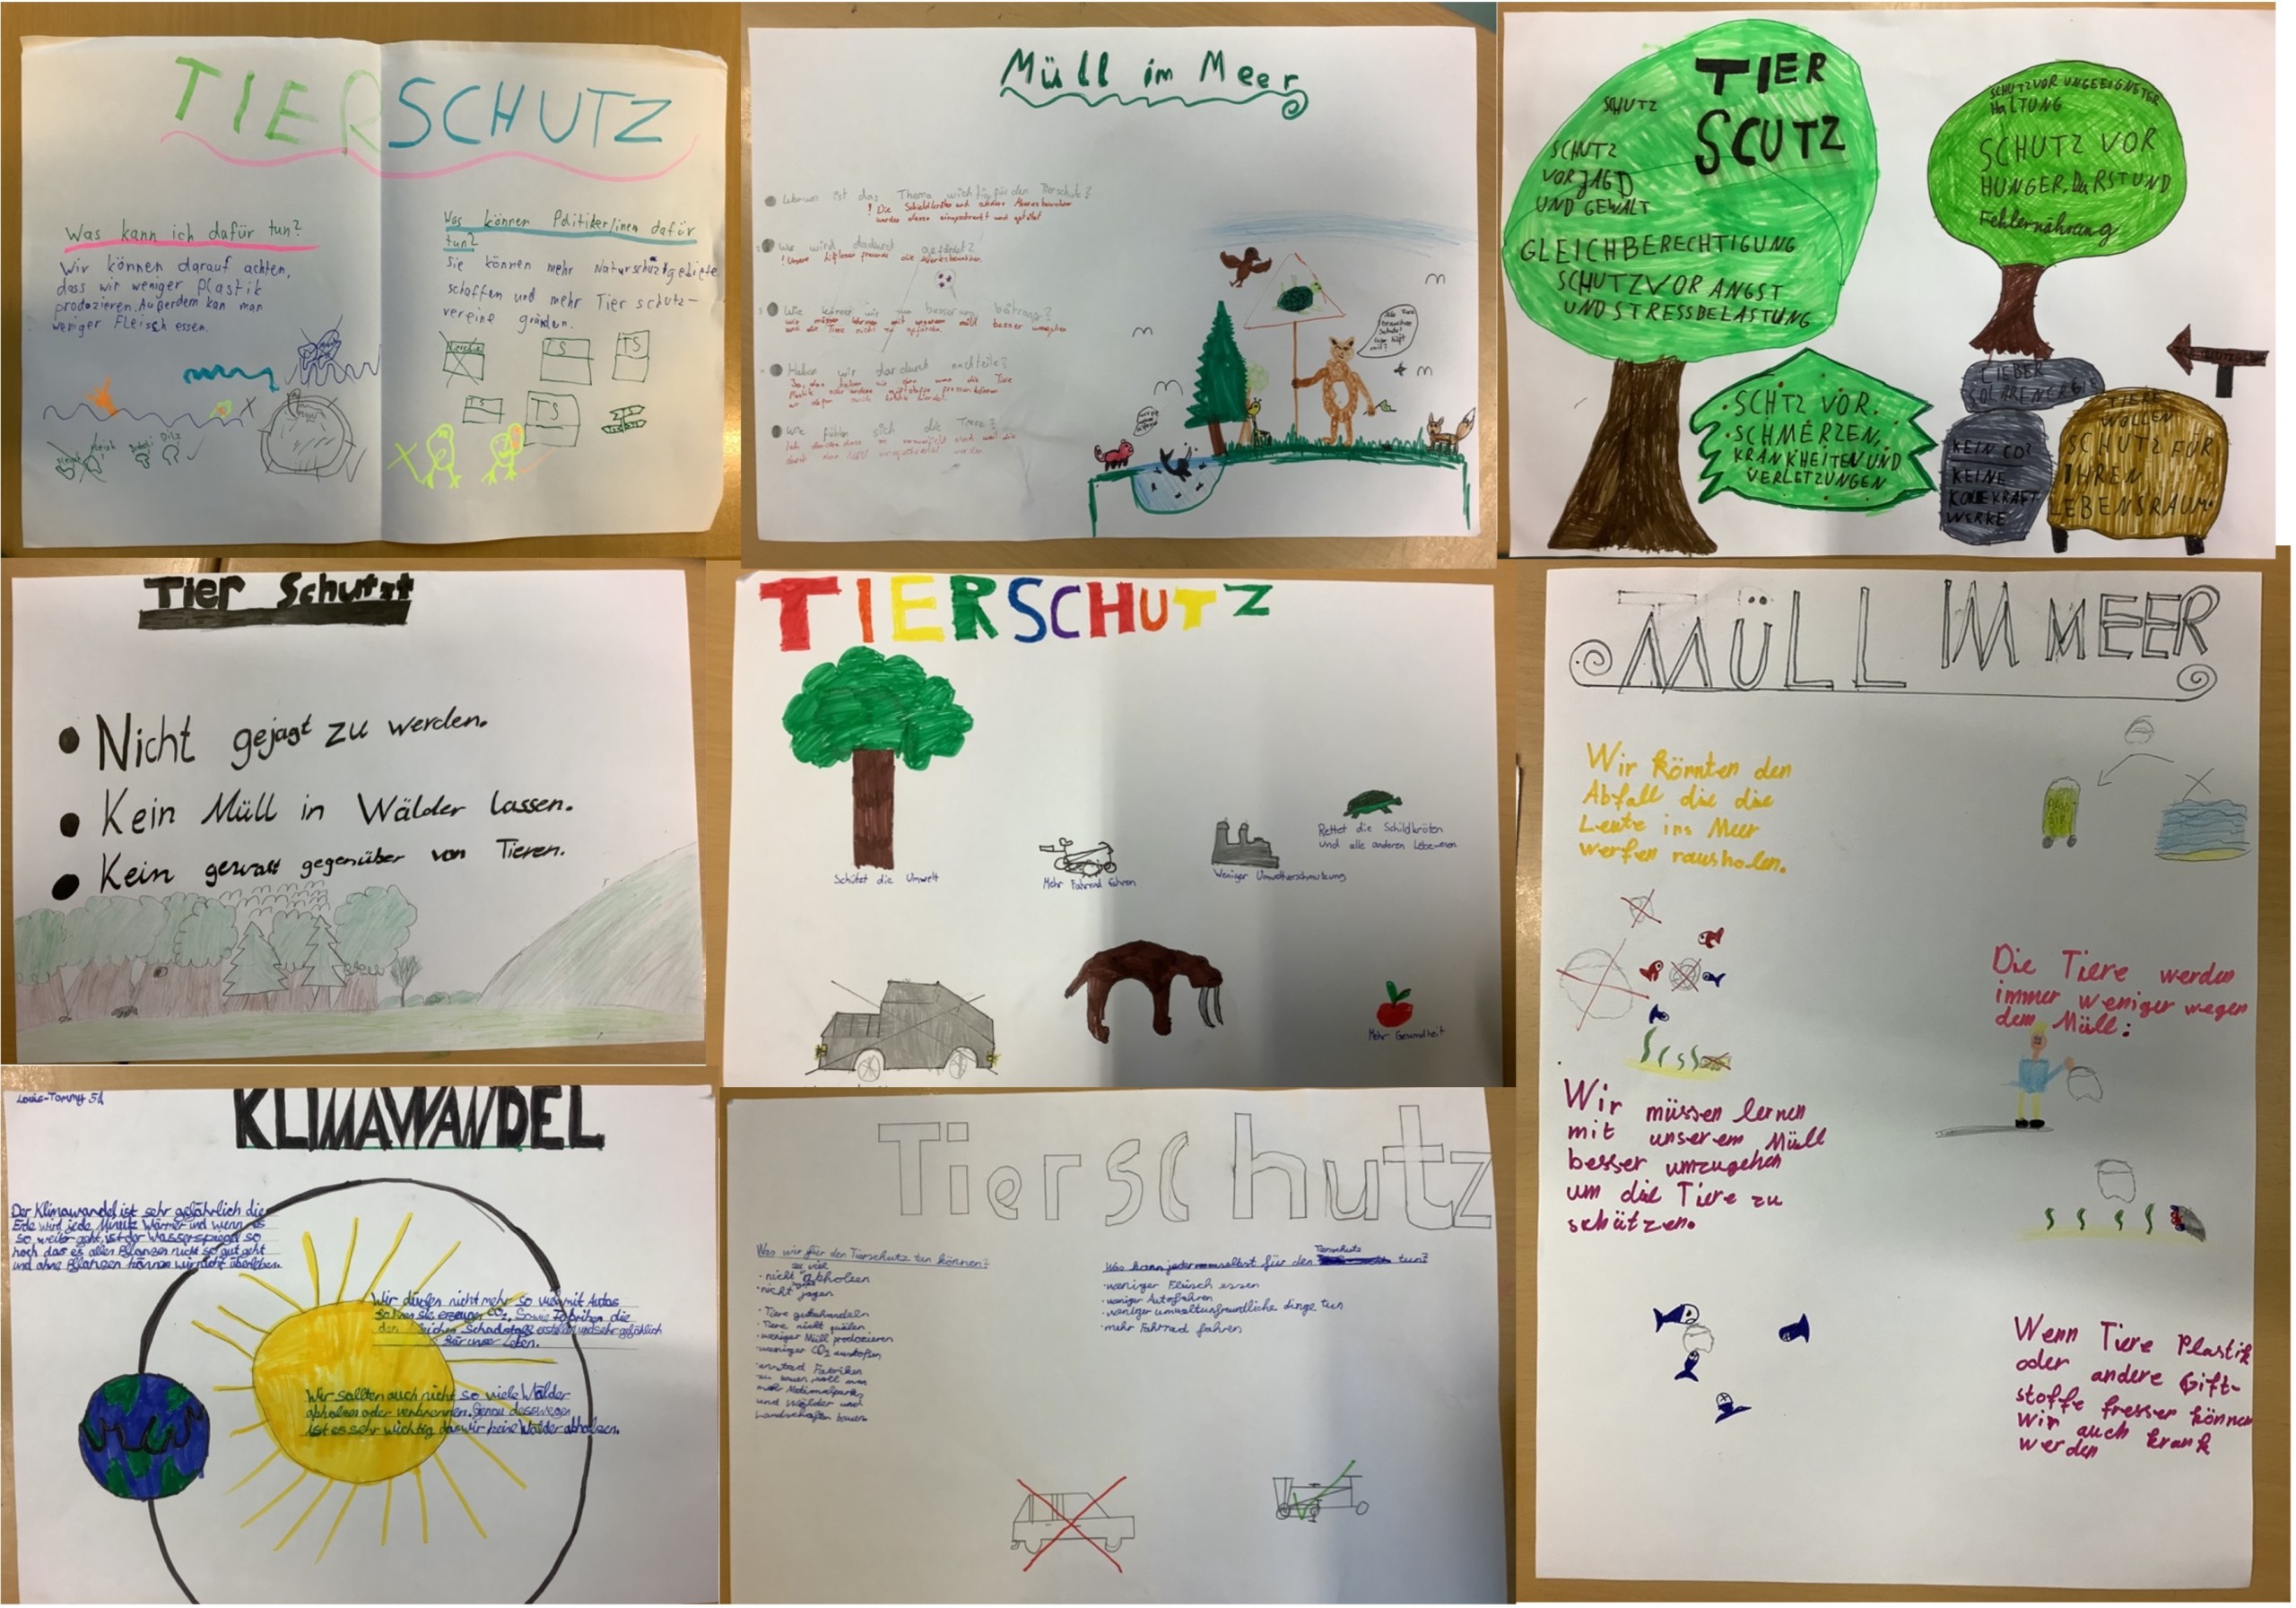 TIERSCHUTZ
Was kann ich dafür tun?
Wir können darauf achten,
dass wir weniger Plastik
produzieren. Außerdem kan man
weniger Fleisch essen.
Was können Politiker/inen dafür
tun?
Sie können mehr Naturschutzgebiete
schaffen und mehr Tierschutz-
vereine gründen.
TS
TS
TS
TS
Müll im Meer
Warum ist das Thema wichtig für den Tierschutz?
! Die Schildkröten und andere Meeresbewohner
Wer wird dadurch gefärdet?
Haben wir dardurch nachteile?
Wie fühlen sich die Tiere?
Alle Tiere
brauchen
Schutz!
TIER
SCUTZ
SCHUTZ
SCHUTZ
VOR JAGD
UND GEWALT
GLEICHBERECHTIGUNG
SCHUTZ VOR ANGST
UND STRESSBELASTUNG
SCHUTZ VOR UNGEEIGNETER
HALTUNG
SCHUTZ VOR
HUNGER, DURST UND
Fehlernährung
SCHTZ VOR
SCHMERZEN,
KRANKHEITEN UND
VERLETZUNGEN
LIEBER
SOLARENERGIE
KEIN CO2
KEINE
KOLEKRAFT
WERKE
TIERE
WOLLEN
SCHUTZ FÜR
IHREN
LEBENSRAUM.
Tier Schutzt
Nicht gejagt zu werden.
Kein Müll in Wälder lassen.
Kein gewalt gegenüber von Tieren.
TIERSCHUTZ
Schützt die Umwelt
Mehr Fahrrad fahren
Weniger Umweltverschmutzung
Rettet die Schildkröten
und alle anderen Lebewesen
Mehr Gesundheit
MÜLL IM MEER
Wir könnten den
Abfall die die
Leute ins Meer
werfen rausholen.
Die Tiere werden
immer weniger wegen
dem Müll:
Wir müssen lernen
mit unserem Müll
besser umzugehen
um die Tiere zu
schützen.
Wenn Tiere Plastik
oder andere Gift-
stoffe fressen können
wir auch krank
werden
Louis-Tommy 5d
KLIMAWANDEL
Der Klimawandel ist sehr gefährlich die
Erde wird jede Minute Wärmer und wenn es
so weiter geht, ist der Wasserspiegel so
hoch das es allen Pflanzen nicht so gut geht
und ohne Pflanzen können wir nicht überleben.
Wir dürfen nicht mehr so viel mit Autos
fahren sie erzeugen CO2. Sowie Fabriken die
für unser Leben.
Wir sollten auch nicht so viele Wälder
abholzen oder verbrennen. Genau deswegen
ist es sehr wichtig das wir keine Wälder abholzen.
Tierschutz
Was wir für den Tierschutz tun können?
zu viel
· nicht abholzen
· nicht jagen
· Tiere gutehandeln
· Tiere nicht quälen
· weniger Müll produzieren
· weniger CO2 ausstoßen
· anstad Fabriken
zu bauen, soll man
mehr Nationalparks
und Wälder und
Landschaften bauen
Tierschutz
Was kann jeder selbst für den tun?
· weniger Fleisch essen
· weniger Autofahren
· weniger umweltunfreundliche dinge tun
· mehr Fahrrad fahren